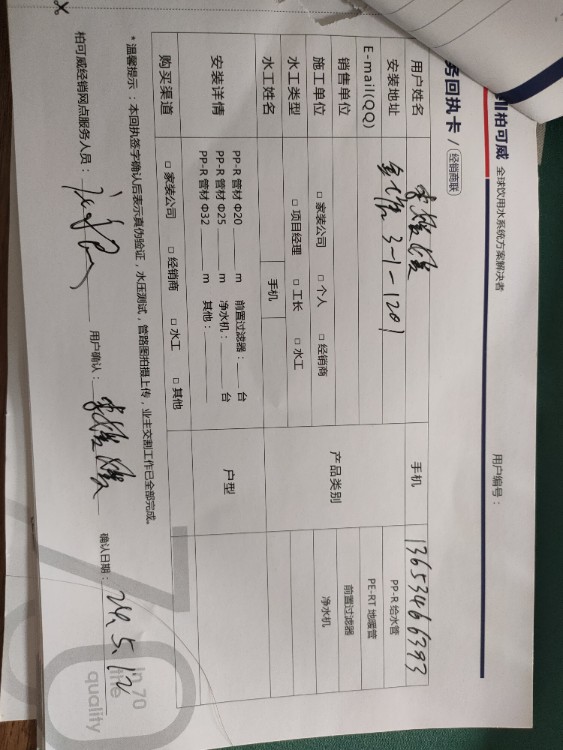 柏可威 全球饮用水系统方案解决者
务回执卡 / 经销商联
用户编号：
用户姓名 李雄滨 手机 13653466393
安装地址 3-1-1201
E-mail(QQ) 产品类别 PP-R 给水管
销售单位 PE-RT 地暖管
施工单位 □ 家装公司 □ 个人 □ 经销商 前置过滤器
水工类型 □ 项目经理 □ 工长 □ 水工 净水机
水工姓名 手机
安装详情 PP-R 管材 Φ20 m 前置过滤器：____台 户型
PP-R 管材 Φ25 m 净水机：____台
PP-R 管材 Φ32 m 其他：____
购买渠道 □ 家装公司 □ 经销商 □ 水工 □ 其他
*温馨提示：本回执签字确认后表示真伪验证，水压测试，管路图拍摄上传，业主交割工作已全部完成。
柏可威经销网点服务人员： 用户确认：李雄滨 确认日期：24.5.12
70
In 70
line
quality